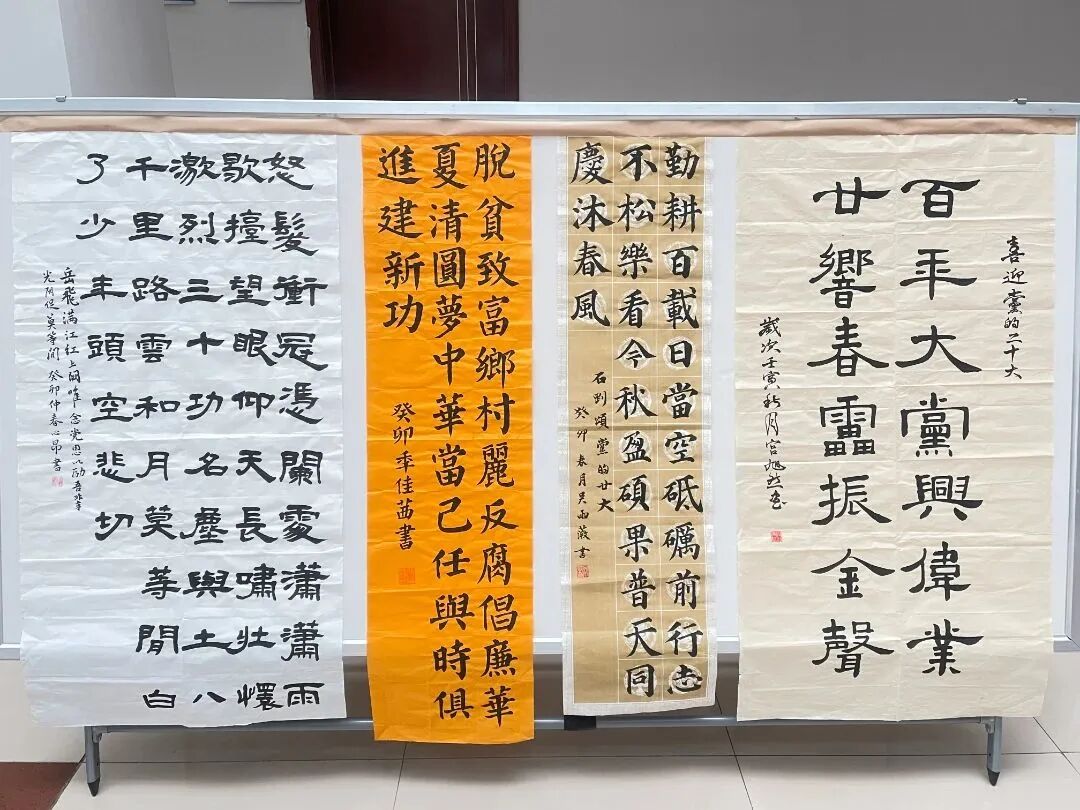 喜迎黨的二十大
百年大黨興偉業
廿響春靁振金聲
歲次壬寅秋月宫旭書
勤耕百載日當空砥礪前行志
不松樂看今秋盈碩果普天同
慶沐春風
頌黨的廿大
癸卯春月吴雨薇書
脫貧致富鄉村麗反腐倡廉華
夏清圓夢中華當己任與時俱
進建新功
癸卯季佳茜書
怒髮衝冠憑闌處瀟瀟雨
歇擡望眼仰天長嘯壯懷
激烈三十功名塵與土八
千里路雲和月莫等閒白
了少年頭空悲切
岳飛满江红上阕唯念党恩以励吾辈
光阴促莫等闲 癸卯仲春心昂書